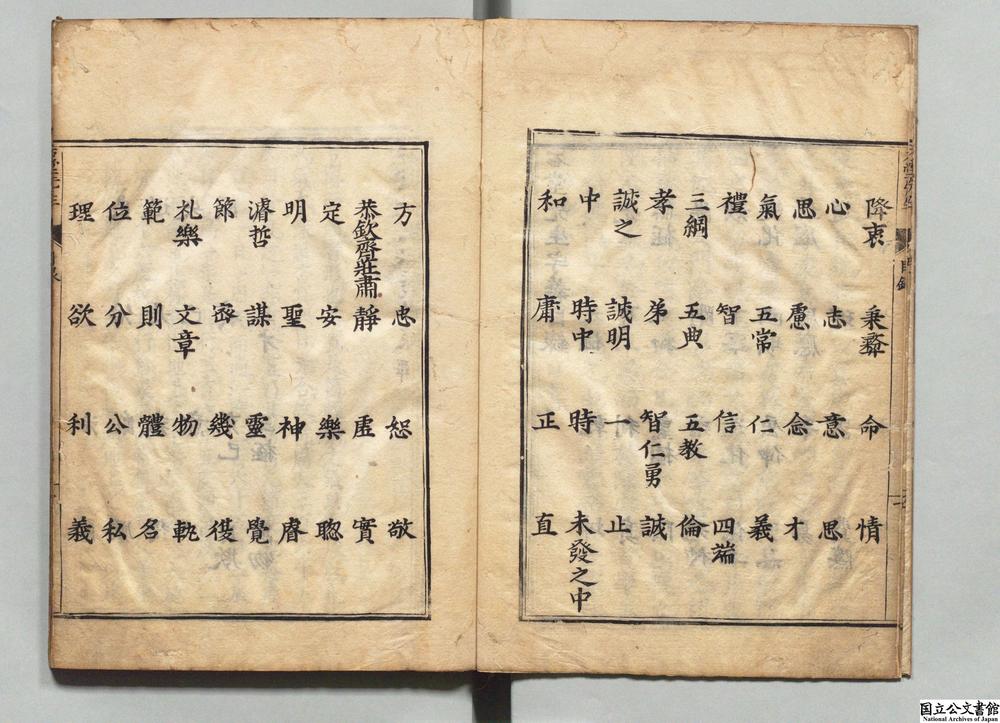 降衷 秉彛 命 情
心 志 意 思
思 慮 念 才
氣 五常 仁 義
禮 智 信 四端
三綱 五典 五教 倫
孝 弟 智仁勇 誠
誠之 誠明 一 止
中 時中 時 未發之中
和 庸 正 直
方 忠 恕 敬
恭欽齊莊肅 靜 虛 實
定 安 樂 聦
明 聖 神 睿
濬哲 謀 靈 覺
節 密 幾
礼樂 文章 物 軌
範 則 體 名
位 分 公 私
理 欲 利 義
国立公文書館
National Archives of Japan